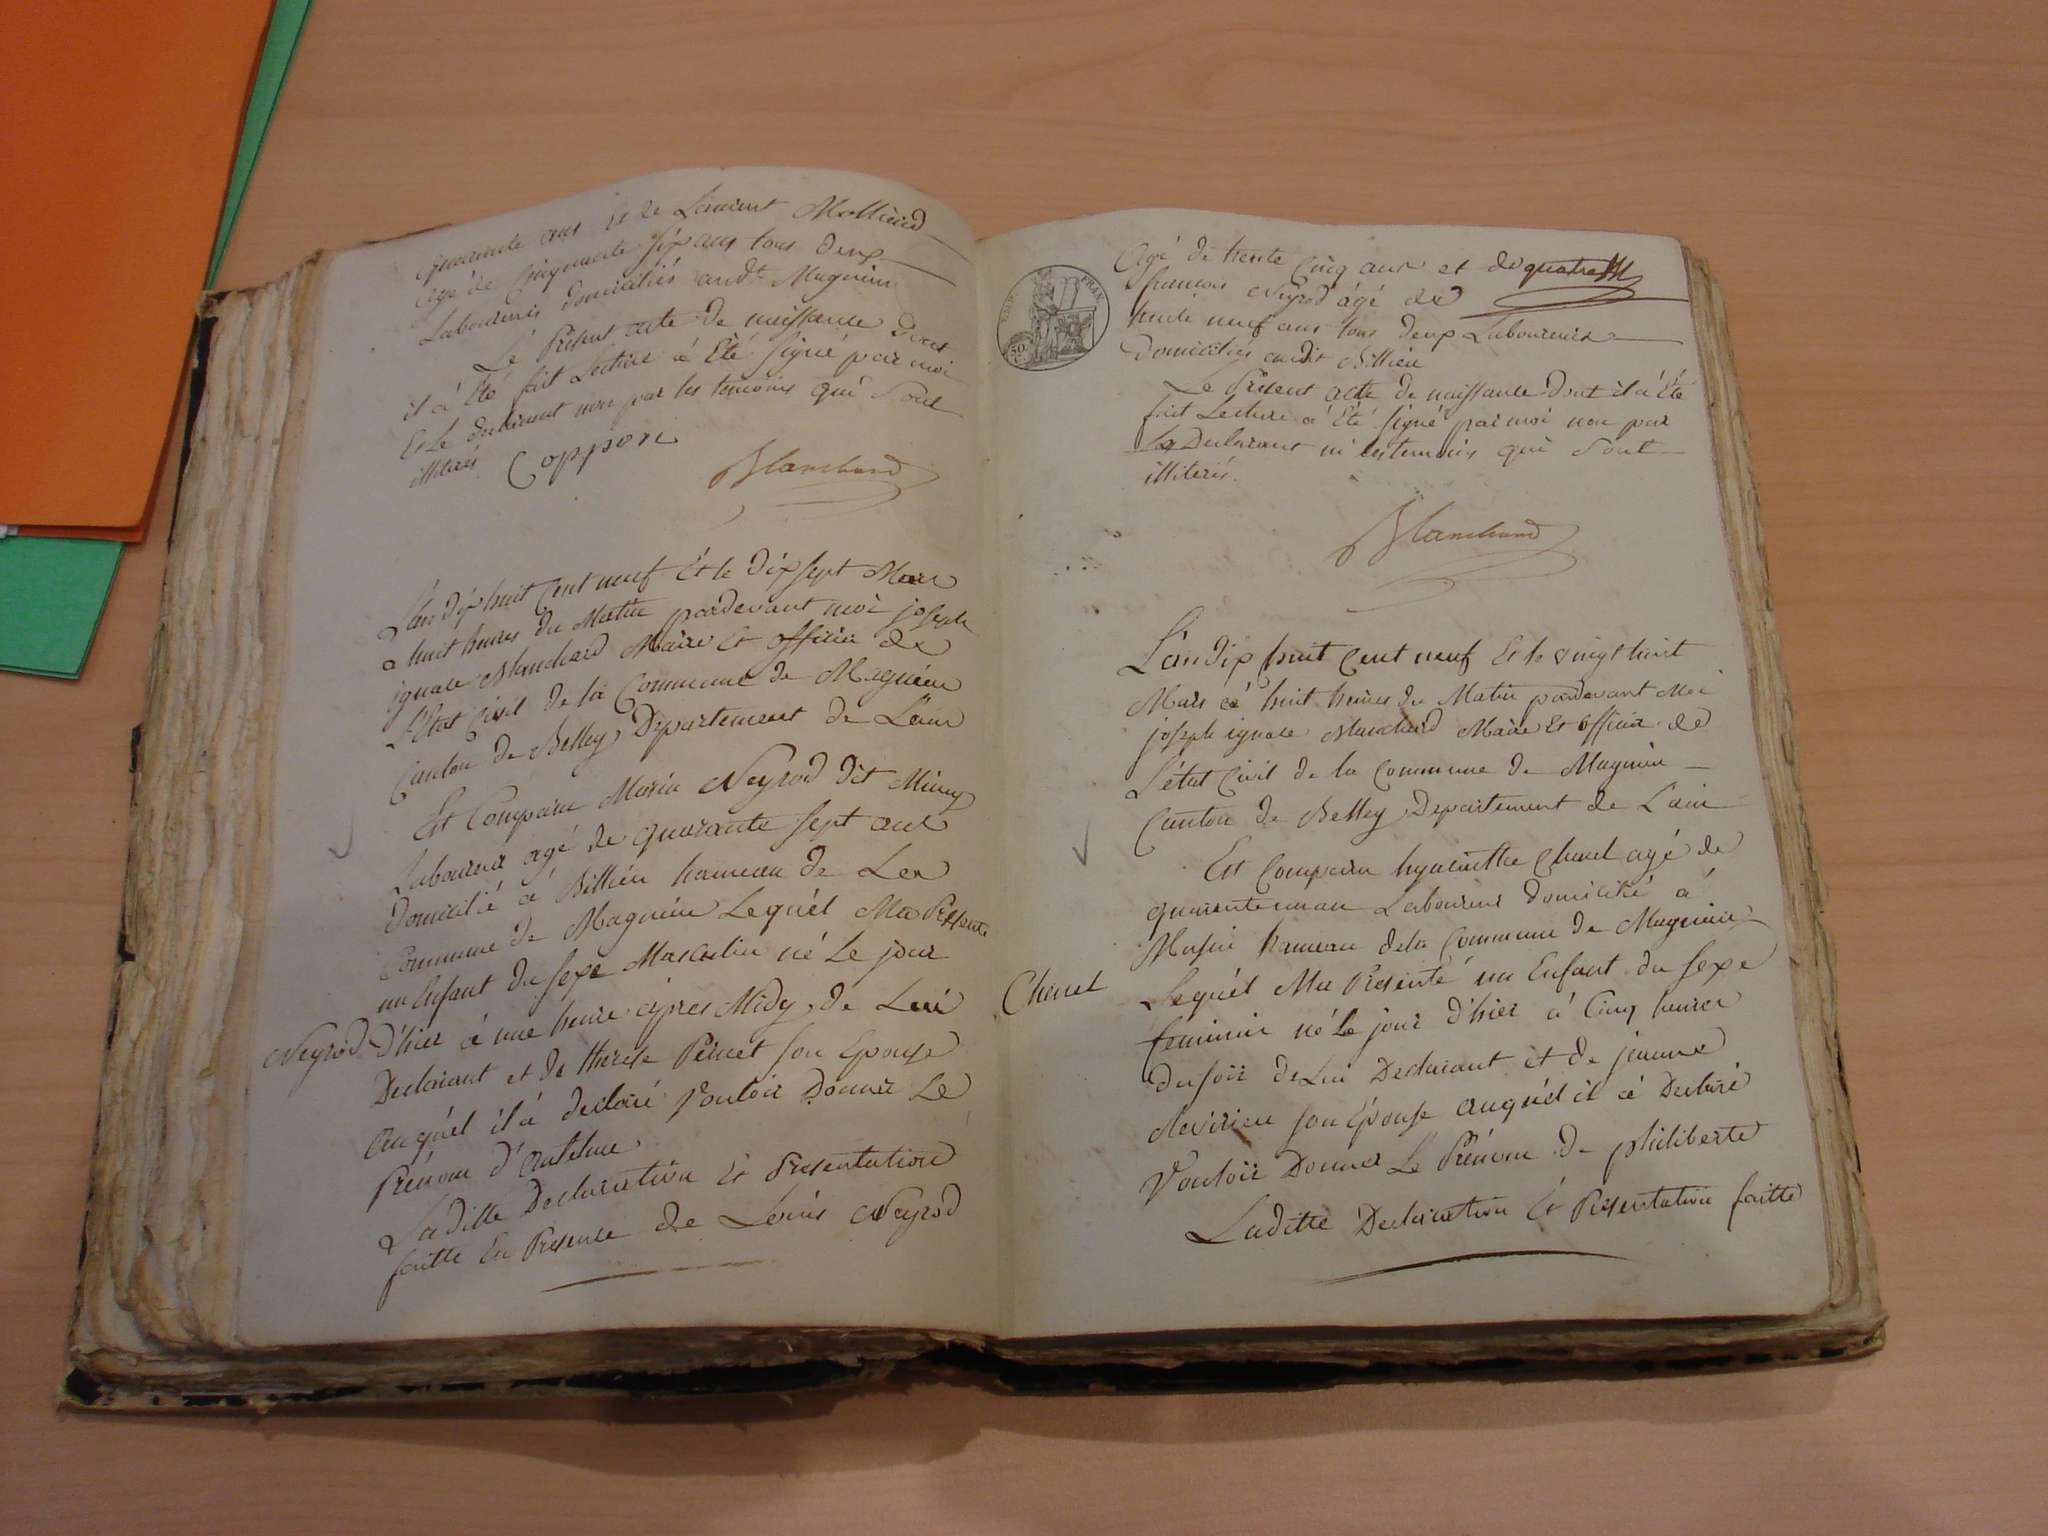 quarante ans et de Laurent Mollieud
agé de Cinquante six ans tous deux
Laboureurs domiciliés audt. Magnieu
Le Présent acte de naissance dont
il à Eté fait Lecture à Eté signé par moi
Et Le declarant non par les temoins qui sont
illiterés
Coppon
Blanchard
L'an dix huit Cent neuf Et le dix sept Mars
a huit heures du Matin pardevant moi joseph
ignace Blanchard Maire Et officier de
L'état Civil de la Commune de Magnieu
Canton de Belley Departement de L'ain
Est Comparu Neyrod dit
Laboureur agé de quarante sept ans
domicilié à Billieu hameau de La
Commune de Magnieu Lequél Ma Présenté
un Enfant du sexe Masculin né Le jour
Neyrod
d'hier à une heure après Midy, de Lui
Declarant et de therese Pernet son Epouse
auquél il à declaré Vouloir Donner Le
Prénom d'antelme
Laditte Declaration Et Présentation
faitte En Présence de Louis Neyrod
Agé de trente Cinq ans et de quatre
REP. FRAN.
50 C.
francois Neyrod agé de
trente neuf ans tous deux Laboureurs
domiciliés audit Billieu
Le Présent acte de naissance dont il à Eté
fait Lecture à Eté signé par moi non par
Le Declarant ni les temoins qui sont
illiterés.
Blanchard
L'an dix huit Cent neuf Et le vingt huit
Mars à huit heures du Matin pardevant Moi
joseph ignace Blanchard Maire Et officier de
L'état Civil de la Commune de Magnieu
Canton de Belley Departement de L'ain
Est Comparu hyacinthe Chenel agé de
quarante un an Laboureur domicilié à
Musin hameau de la Commune de Magnieu
Chenel
Lequél Ma Présenté un Enfant du sexe
feminin né Le jour d'hier à Cinq heures
du soir de Lui Declarant et de jeanne
devirieu son Epouse auquél il à Declaré
Vouloir Donner Le Prénom de philiberte
Laditte Declaration Et Présentation faitte